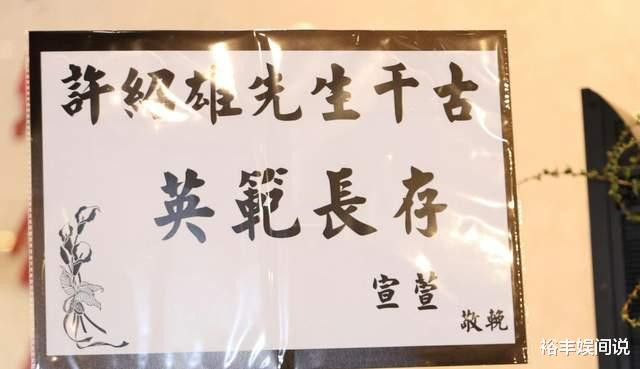 許紹雄先生千古
英範長存
宣萱
敬輓
裕丰娱间说